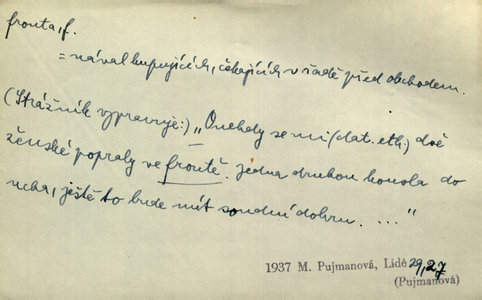 fronta, f.
= nával kupujících, čekajících v řadě před obchodem.
(Strážník vypravuje:) „Onehdy se mi (dat. eth.) dvě
ženské popraly ve frontě. jedna druhou kousla do
ucha, ještě to bude mít soudní dohru. ..."
1937 M. Pujmanová, Lidé 29,27
(Pujmanová)